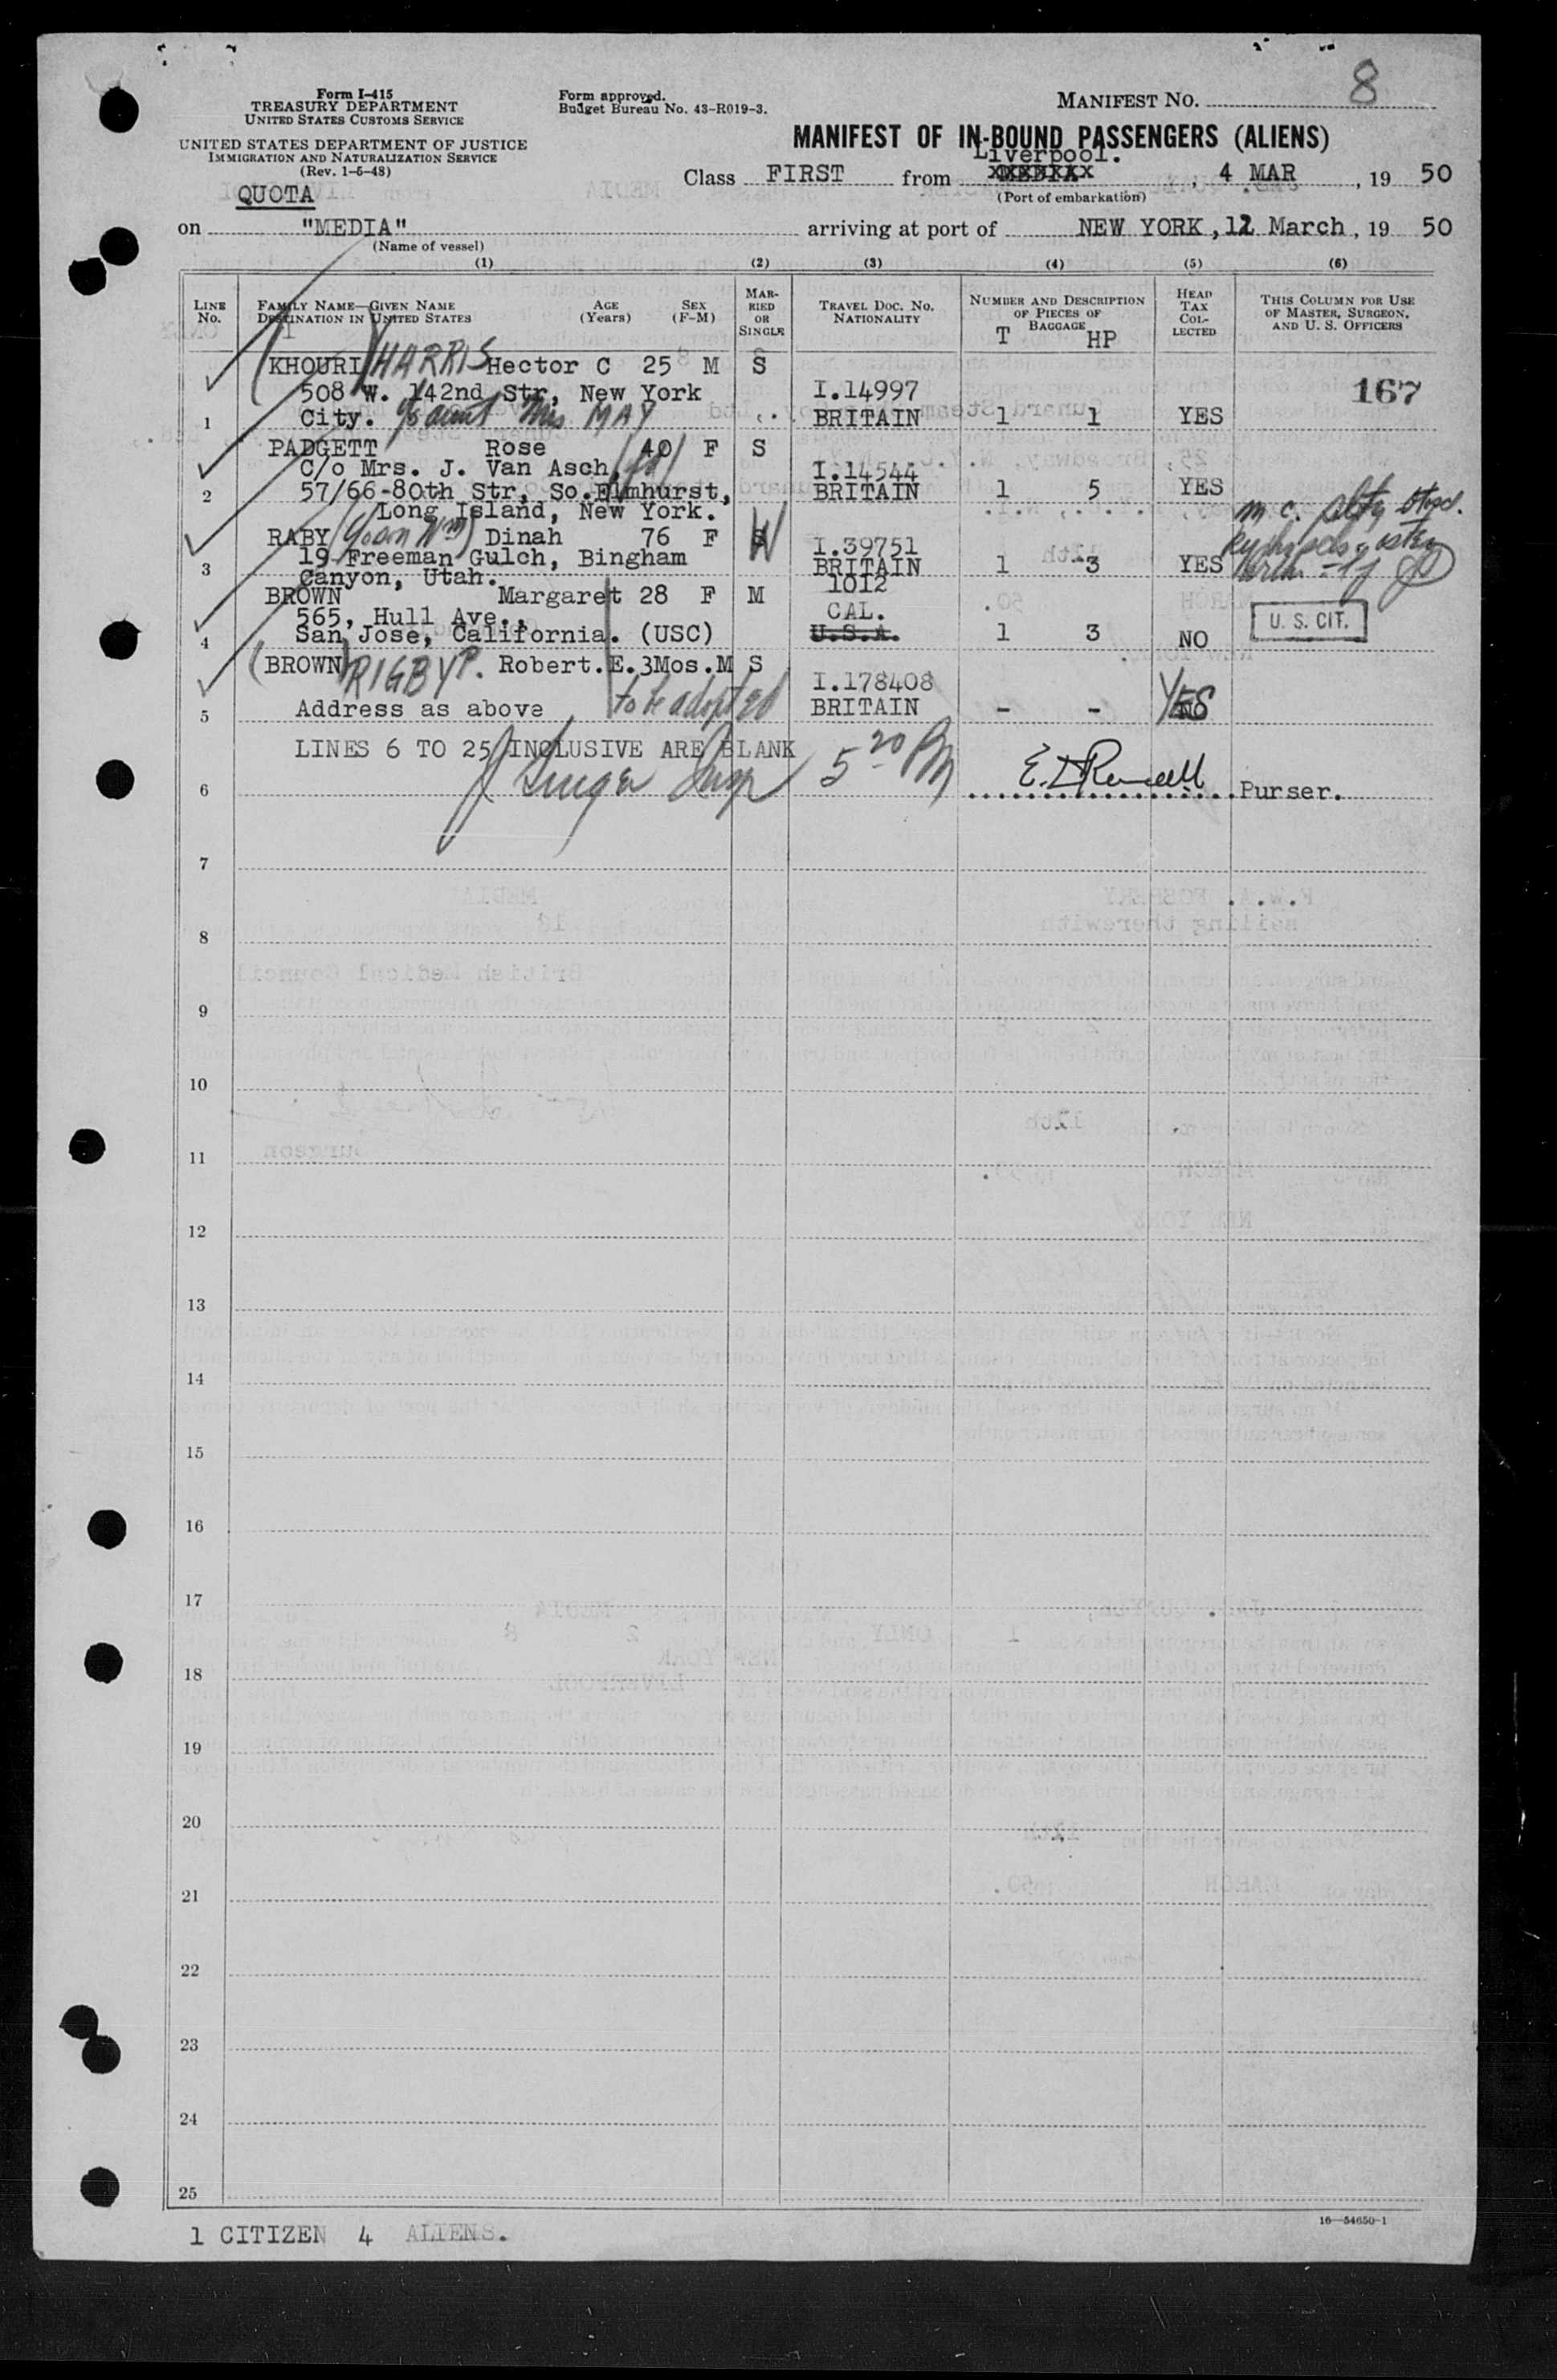 8
Form I-415
TREASURY DEPARTMENT
UNITED STATES CUSTOMS SERVICE
UNITED STATES DEPARTMENT OF JUSTICE
IMMIGRATION AND NATURALIZATION SERVICE
(Rev. 1-6-48)
QUOTA
Form approved.
Budget Bureau No. 43-R019-3.
MANIFEST NO.
MANIFEST OF IN-BOUND PASSENGERS (ALIENS)
Liverpool.
Class FIRST from , 4 MAR , 19 50
(Port of embarkation)
on "MEDIA" arriving at port of NEW YORK, 12 March, 19 50
(Name of vessel)
(1) (2) (3) (4) (5) (6)
LINE NO.
FAMILY NAME—GIVEN NAME AGE (Years) SEX (F-M)
DESTINATION IN UNITED STATES
MARRIED OR SINGLE
TRAVEL DOC. NO. NATIONALITY
NUMBER AND DESCRIPTION OF PIECES OF BAGGAGE
T HP
HEAD TAX COLLECTED
THIS COLUMN FOR USE OF MASTER, SURGEON, AND U. S. OFFICERS
(KHOURI) HARRIS Hector C 25 M S
508 W. 142nd Str, New York I.14997 167
1 City. c/o aunt Mrs MAY BRITAIN 1 1 YES
PADGETT Rose 40 F S
C/o Mrs. J. Van Asch, I.14544
2 57/66-80th Str, So.Elmhurst, BRITAIN 1 5 YES
Long Island, New York.
RABY Dinah 76 F W
19 Freeman Gulch, Bingham I.39751
3 Canyon, Utah. BRITAIN 1 3 YES
BROWN Margaret 28 F M 1012
565, Hull Ave., CAL.
4 San Jose, California. (USC) U.S.A. 1 3 NO U. S. CIT.
(BROWN) RIGBY P. Robert.E. 3Mos.M S
I.178408
5 Address as above to be adopted BRITAIN - - YES
LINES 6 TO 25 INCLUSIVE ARE BLANK 5 20 PM
6 Purser.
7
8
9
10
11
12
13
14
15
16
17
18
19
20
21
22
23
24
25
16—54650-1
1 CITIZEN 4 ALIENS.